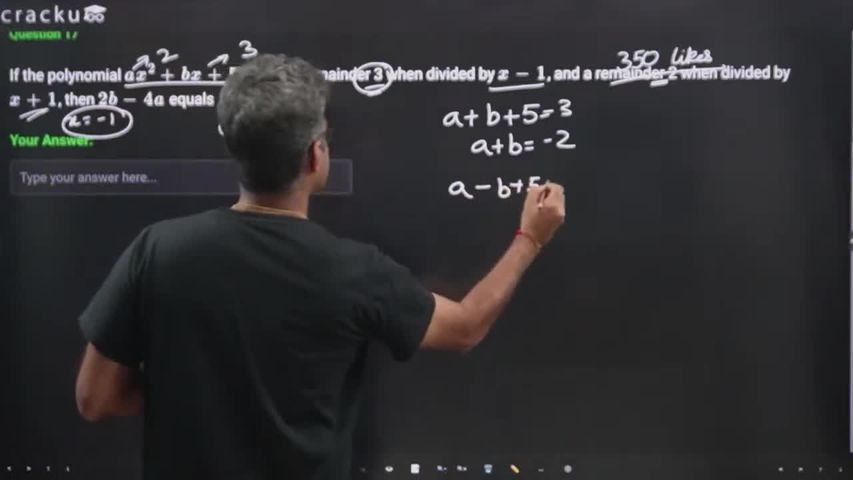 cracku
Question 17
350 likes
2 3
If the polynomial ax² + bx + mainder 3 when divided by x − 1, and a remainder 2 when divided by
x + 1, then 2b − 4a equals
x = -1
a+b+5=3
a+b= -2
Your Answer:
Type your answer here...
a-b+5